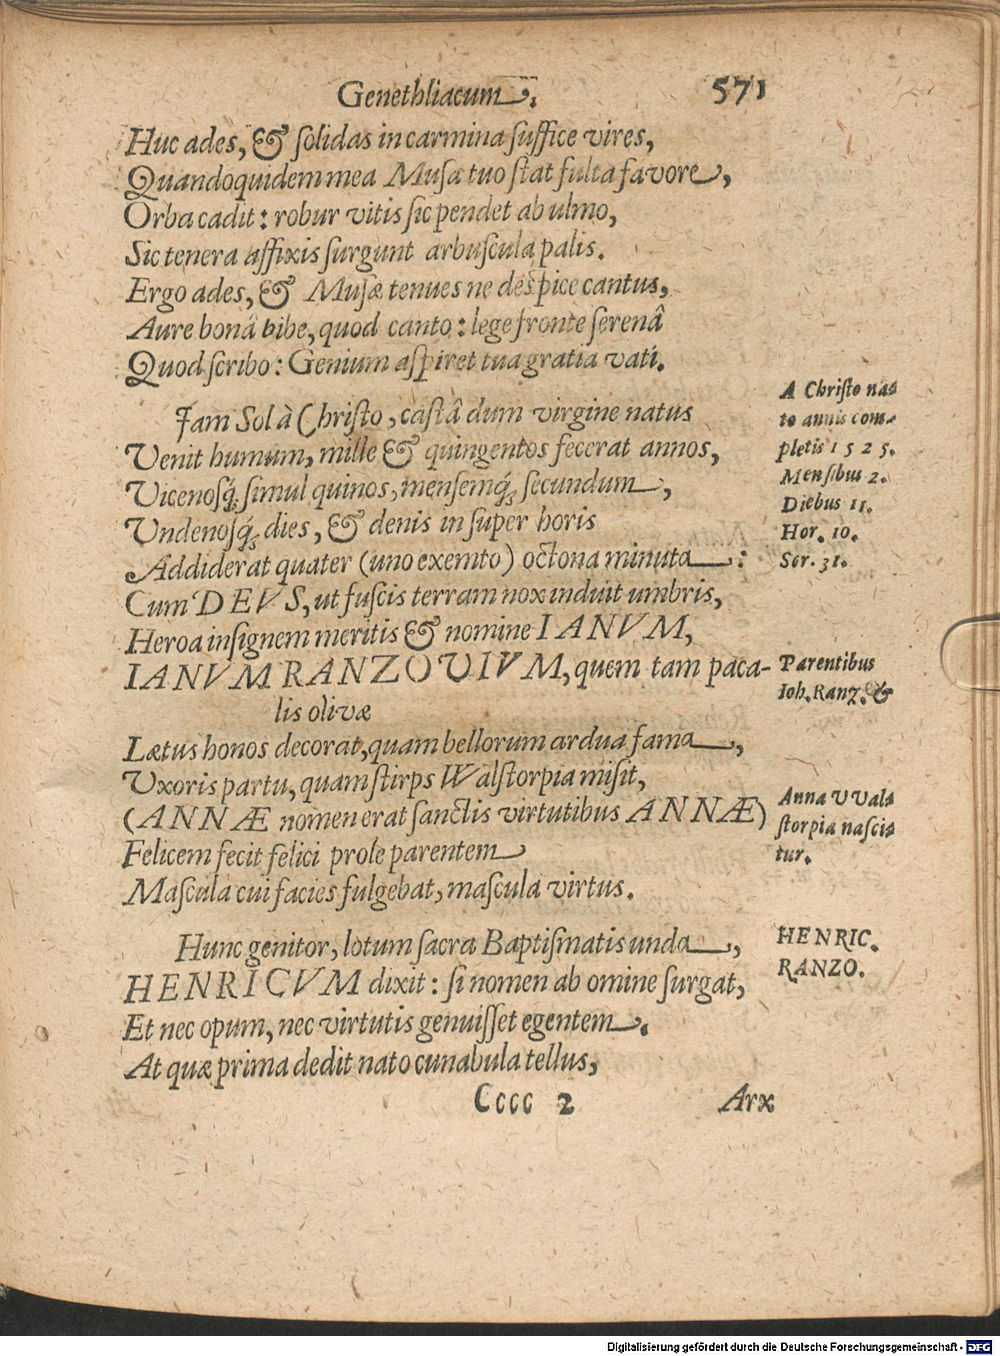 Genethliacum. 571
Huc ades, & ſolidas in carmina ſuffice vires,
Quandoquidem mea Muſa tuo ſtat fulta favore,
Orba cadit: robur vitis ſic pendet ab ulmo,
Sic tenera affixis ſurgunt arbuſcula palis.
Ergo ades, & Muſæ tenues ne deſpice cantus,
Aure bonâ bibe, quod canto: lege fronte ſerenâ
Quod ſcribo: Genium aſpiret tua gratia vati.
Jam Sol à Chriſto, caſtâ dum virgine natus
Venit humum, mille & quingentos fecerat annos,
Vicenoſq́; ſimul quinos, menſemq́; ſecundum,
Undenoſq́; dies, & denis in ſuper horis
Addiderat quater (uno exemto) octona minuta:
Cum DEVS, ut fuſcis terram nox induit umbris,
Heroa inſignem meritis & nomine IANVM,
IANVM RANZOVIVM, quem tam paca-
lis olivæ
Lætus honos decorat, quam bellorum ardua fama,
Uxoris partu, quam ſtirps Walſtorpia miſit,
(ANNÆ nomen erat ſanctis virtutibus ANNÆ)
Felicem fecit felici prole parentem
Maſcula cui facies fulgebat, maſcula virtus.
Hunc genitor, lotum ſacra Baptiſmatis unda,
HENRICVM dixit: ſi nomen ab omine ſurgat,
Et nec opum, nec virtutis genuiſſet egentem.
At quæ prima dedit nato cunabula tellus,
Cccc 2 Arx
A Chriſto na-
to annis com-
pletis 1525.
Menſibus 2.
Diebus 11.
Hor. 10.
Scr. 31.
Parentibus
Ioh. Ranz. &
Anna VVal-
ſtorpia naſci-
tur.
HENRIC.
RANZO.
Digitalisierung gefördert durch die Deutsche Forschungsgemeinschaft - DFG